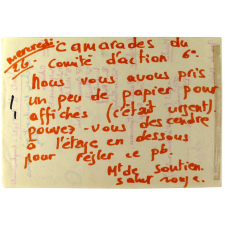 mercredi
26.
Camarades du
Comité d'action 6e.
Nous vous avons pris
un peu de papier pour
affiches (c'était urgent).
pouvez-vous descendre
à l'étage en dessous
pour régler ce pb.
Mt de soutien.